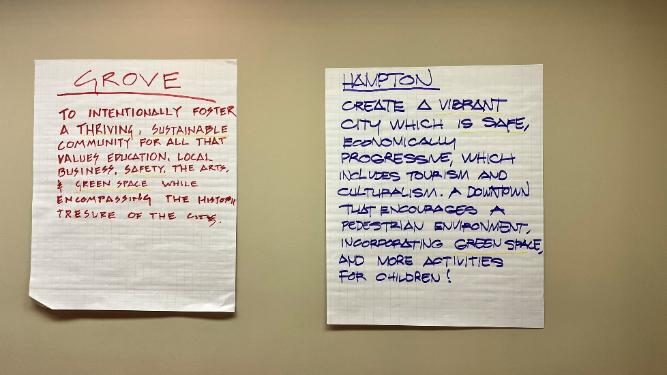 GROVE
TO INTENTIONALLY FOSTER
A THRIVING, SUSTAINABLE
COMMUNITY FOR ALL THAT
VALUES EDUCATION, LOCAL
BUSINESS, SAFETY, THE ARTS,
& GREEN SPACE WHILE
ENCOMPASSING THE HISTORIC
TRESURE OF THE CITY.
HAMPTON
CREATE A VIBRANT
CITY WHICH IS SAFE,
ECONOMICALLY
PROGRESSIVE, WHICH
INCLUDES TOURISM AND
CULTURALISM. A DOWNTOWN
THAT ENCOURAGES A
PEDESTRIAN ENVIRONMENT,
INCORPORATING GREEN SPACE,
AND MORE ACTIVITIES
FOR CHILDREN!